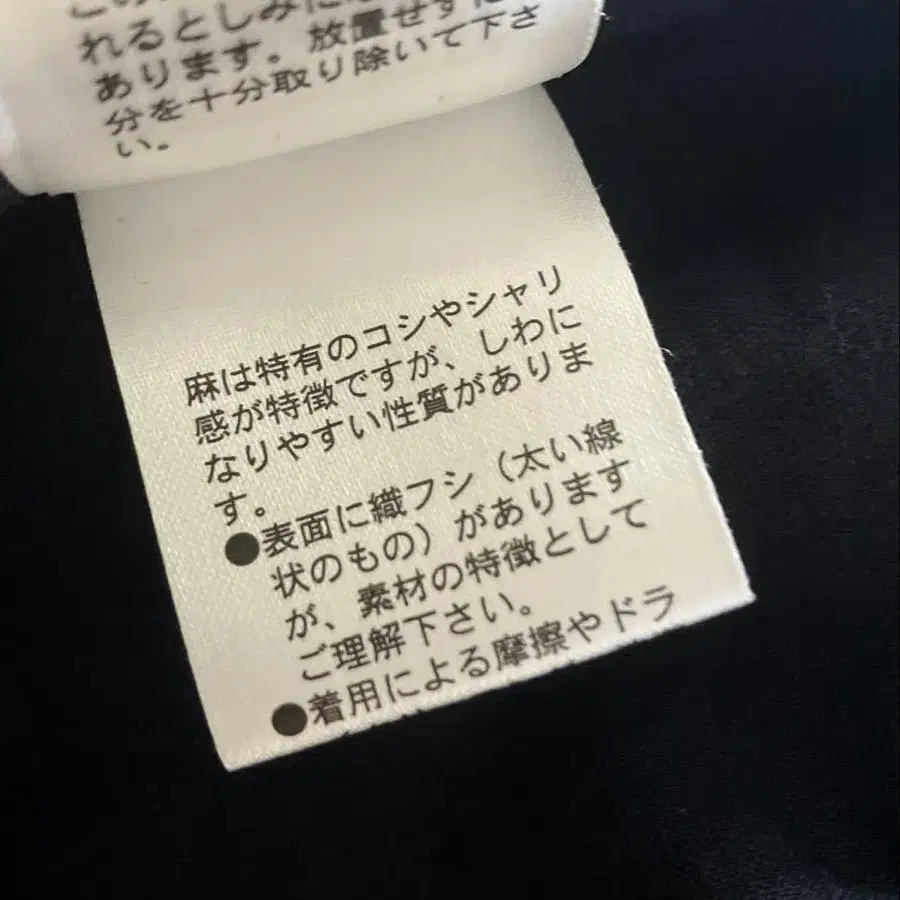 れるとしみに
あります。放置せずに
分を十分取り除いて下さ
い。
麻は特有のコシやシャリ
感が特徴ですが、しわに
なりやすい性質がありま
す。
●表面に織フシ（太い線
状のもの）があります
が、素材の特徴として
ご理解下さい。
●着用による摩擦やドラ